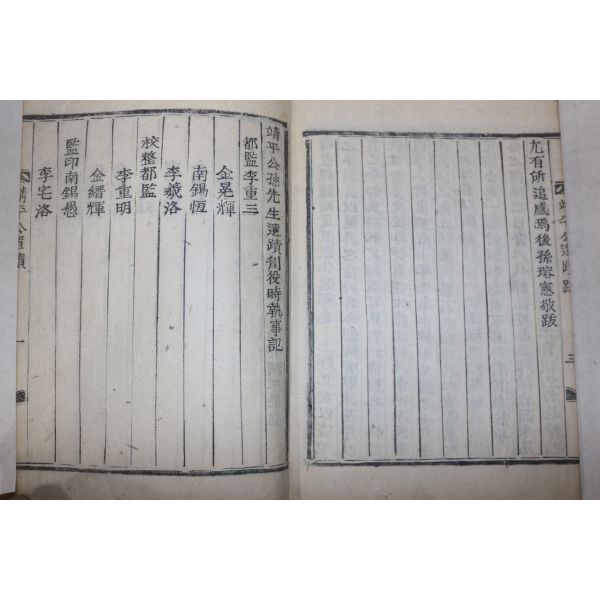 靖平公遺蹟跋
三
尤有所追感焉後孫瑢憲敬跋
靖平公孫先生遺蹟刊役時執事記
都監李重三
金晃輝
南錫恆
李羲洛
校整都監
李重明
金縉輝
監印南錫愚
李宅洛
靖平公遺蹟
一